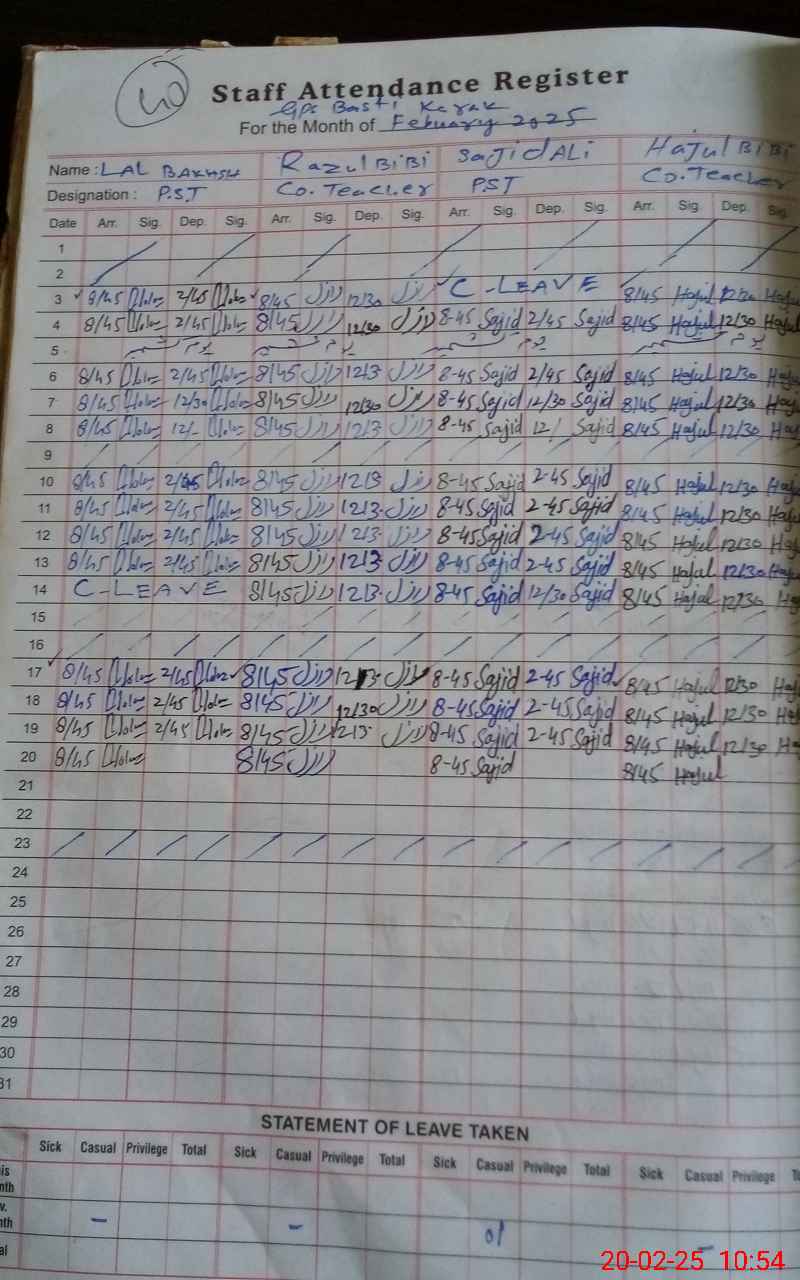 40
Staff Attendance Register
GPS Basti Karak
For the Month of Febuary 2025
Name : LAL BAKHSH RazulBiBi SaJidALi HaJulBiBi
Designation : P.S.T Co.Teacher PST Co.Teacher
Date Arr. Sig. Dep. Sig. Arr. Sig. Dep. Sig. Arr. Sig. Dep. Sig. Arr. Sig. Dep. Sig.
1
2
3 8/45 2/45 8/45 رازل 12/30 رازل C-LEAVE 8/45 Hajul 12/30
4 8/45 2/45 8/45 رازل 12/30 رازل 8-45 Sajid 2/45 Sajid 8/45 Hajul 12/30
5
6 8/45 2/45 8/45 رازل 1213 رازل 8-45 Sajid 2/45 Sajid 8/45 Hajul 12/30
7 8/45 12/30 8/45 رازل 12/30 رازل 8-45 Sajid 12/30 Sajid 8/45 Hajul 12/30
8 8/45 12/- 8/45 رازل 1213 رازل 8-45 Sajid 12/ Sajid 8/45 Hajul 12/30
9
10 8/45 2/45 8/45 رازل 1213 رازل 8-45 Sajid 2-45 Sajid 8/45 Hajul 12/30
11 8/45 2/45 8/45 رازل 1213 رازل 8-45 Sajid 2-45 Sajid 8/45 Hajul 12/30
12 8/45 2/45 8/45 رازل 1213 رازل 8-45 Sajid 2-45 Sajid 8/45 Hajul 12/30
13 8/45 2/45 8/45 رازل 1213 رازل 8-45 Sajid 2-45 Sajid 8/45 Hajul 12/30
14 C-LEAVE 8/45 رازل 1213 رازل 8-45 Sajid 12/30 Sajid 8/45 Hajul 12/30
15
16
17 8/45 2/45 8/45 رازل 1213 رازل 8-45 Sajid 2-45 Sajid 8/45 Hajul 12/30
18 8/45 2/45 8/45 رازل 12/30 رازل 8-45 Sajid 2-45 Sajid 8/45 Hajul 12/30
19 8/45 2/45 8/45 رازل 1213 رازل 8-45 Sajid 2-45 Sajid 8/45 Hajul 12/30
20 8/45 8/45 رازل 8-45 Sajid 8/45 Hajul
21
22
23
24
25
26
27
28
29
30
31
STATEMENT OF LEAVE TAKEN
Sick Casual Privilege Total Sick Casual Privilege Total Sick Casual Privilege Total Sick Casual Privilege
- - 01 -
20-02-25 10:54